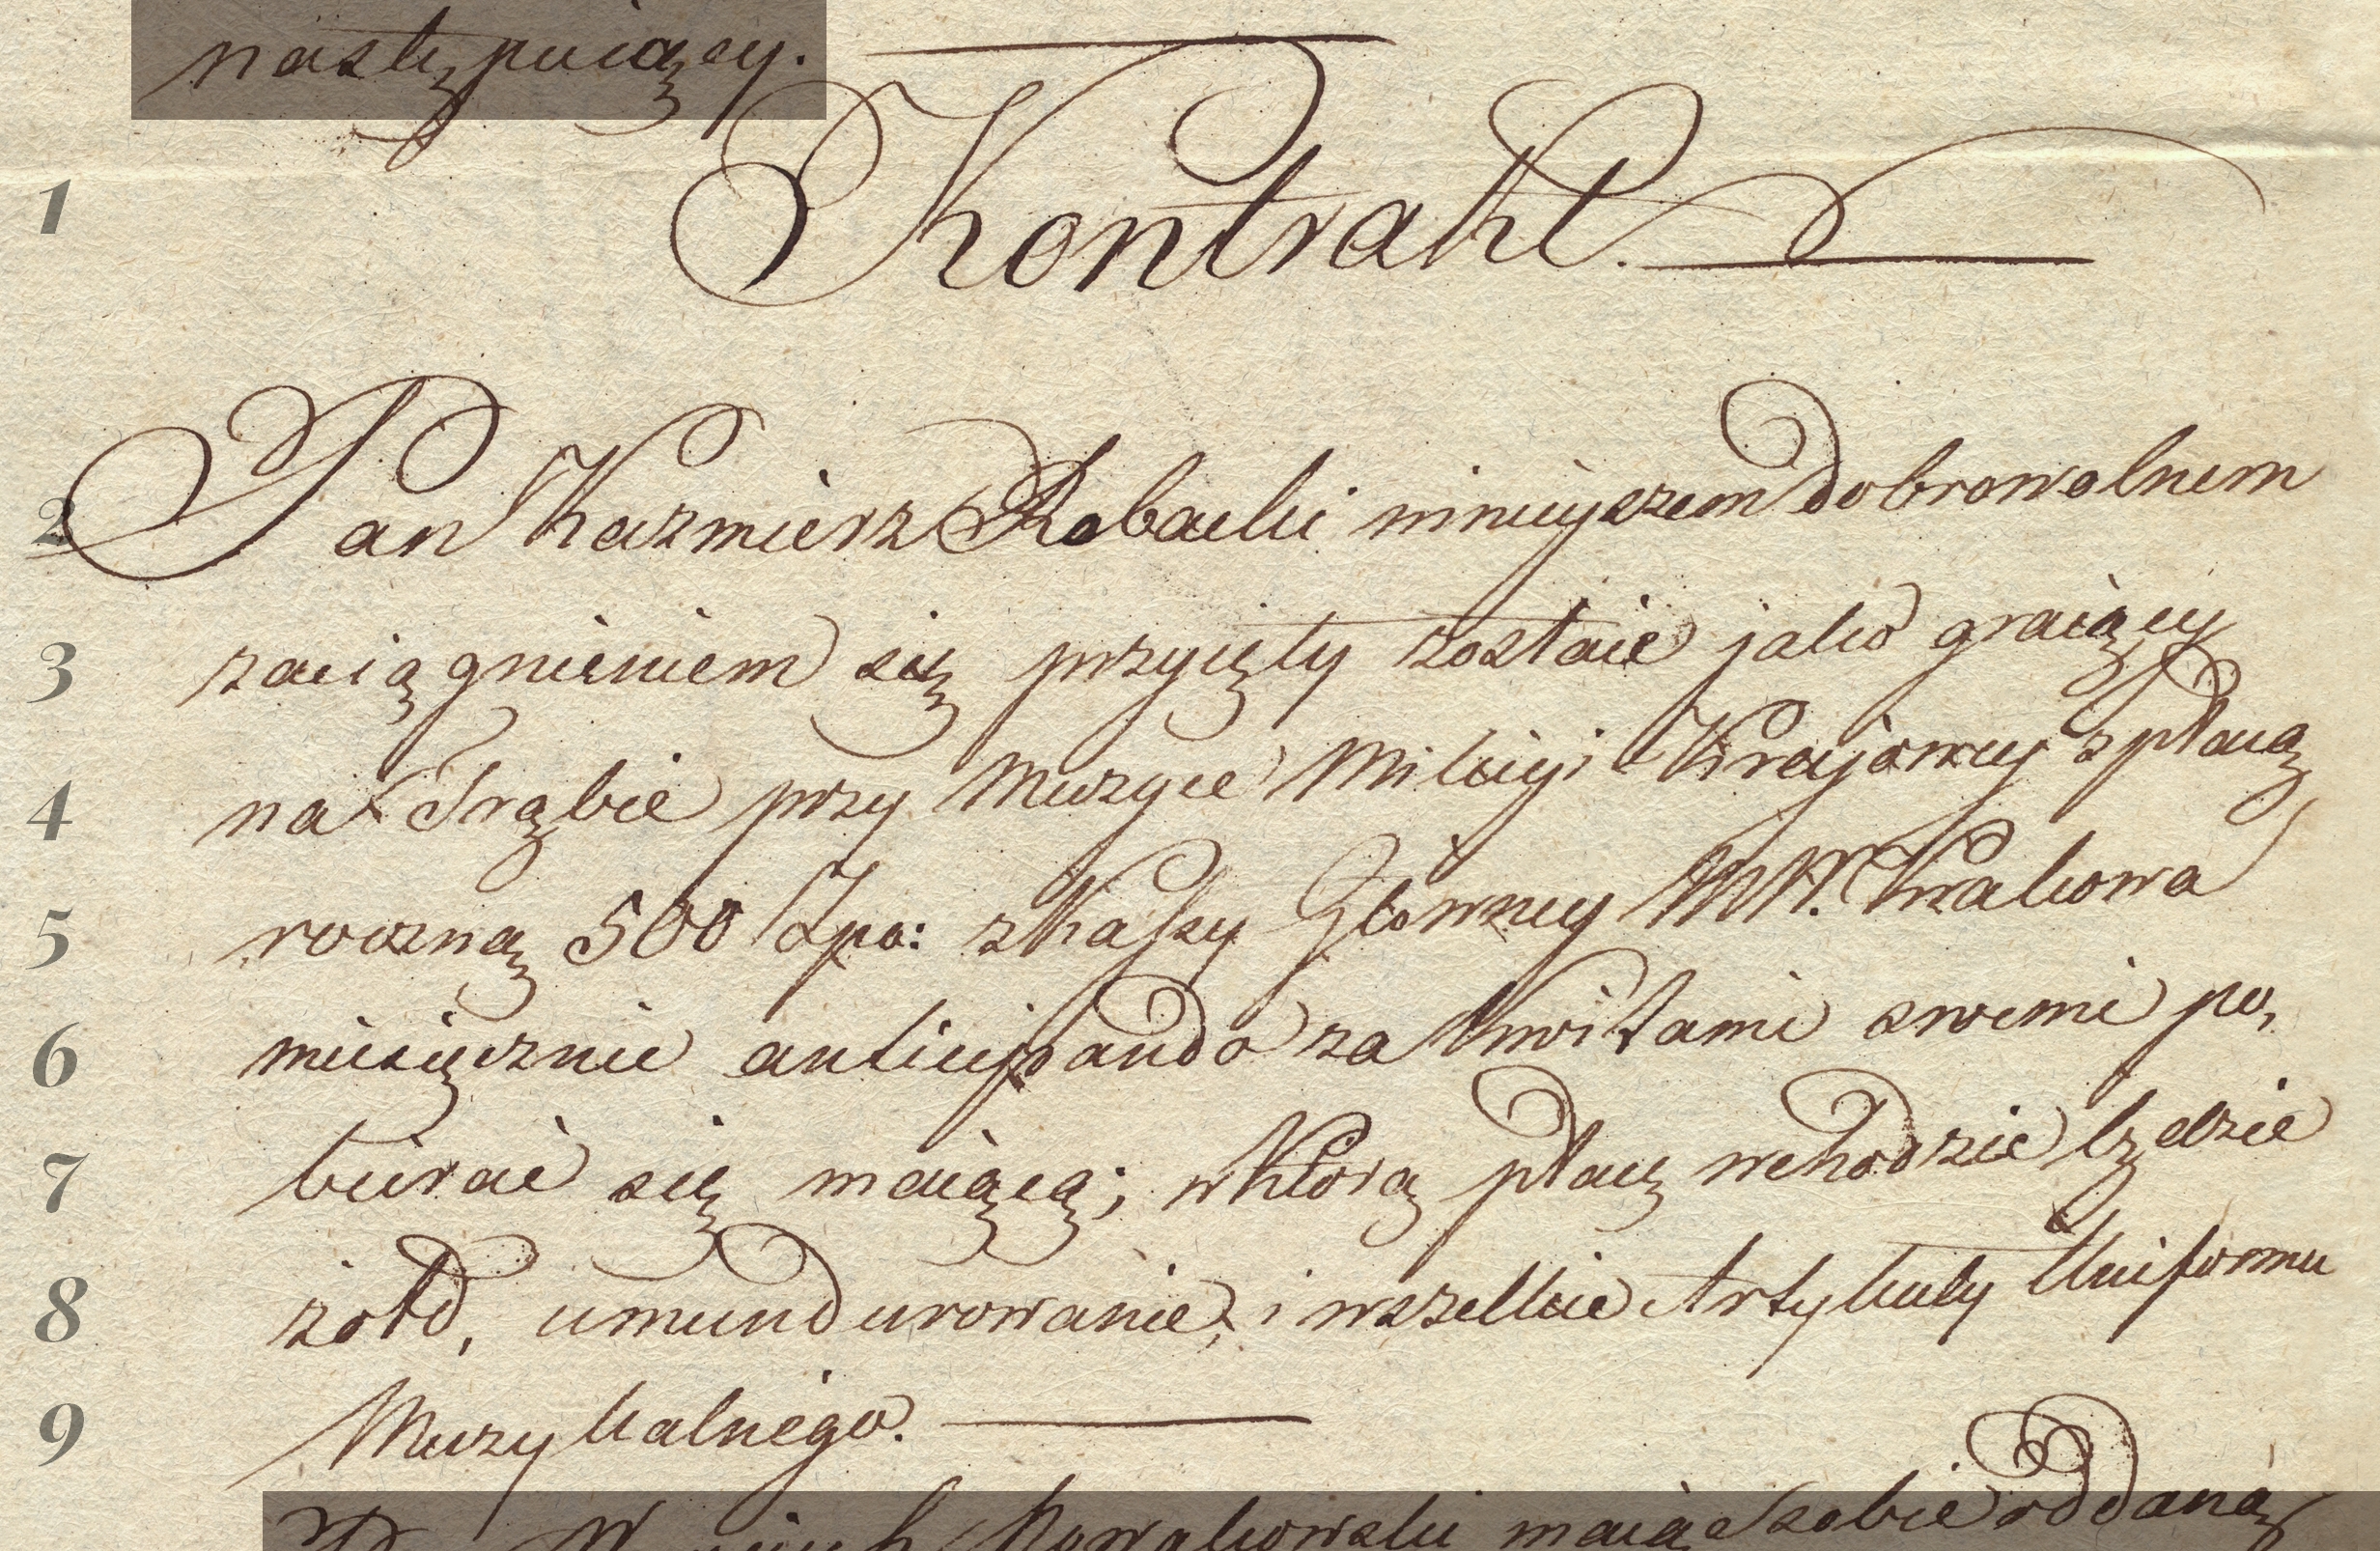 następuiący.
1 Kontrakt.
2 Pan Kazmierz Robacki ninieyszem dobrowolnem
3 zaciągnieniem się przyięty zostaie jako graiący
4 na Trąbie przy Muzyce Milicyi Krajowey z płacą
5 roczną 500 Zpo: z Kassy Główney MW. Krakowa
6 miesięcznie anticipando za kwitami swemi po,
7 bierać się maiącą; w którą płacę wchodzić będzie
8 żołd, umundurowanie, i wszelkie Artykuły Uniformu
9 Muzykalnego.
Nowakowski maiąc sobie oddaną